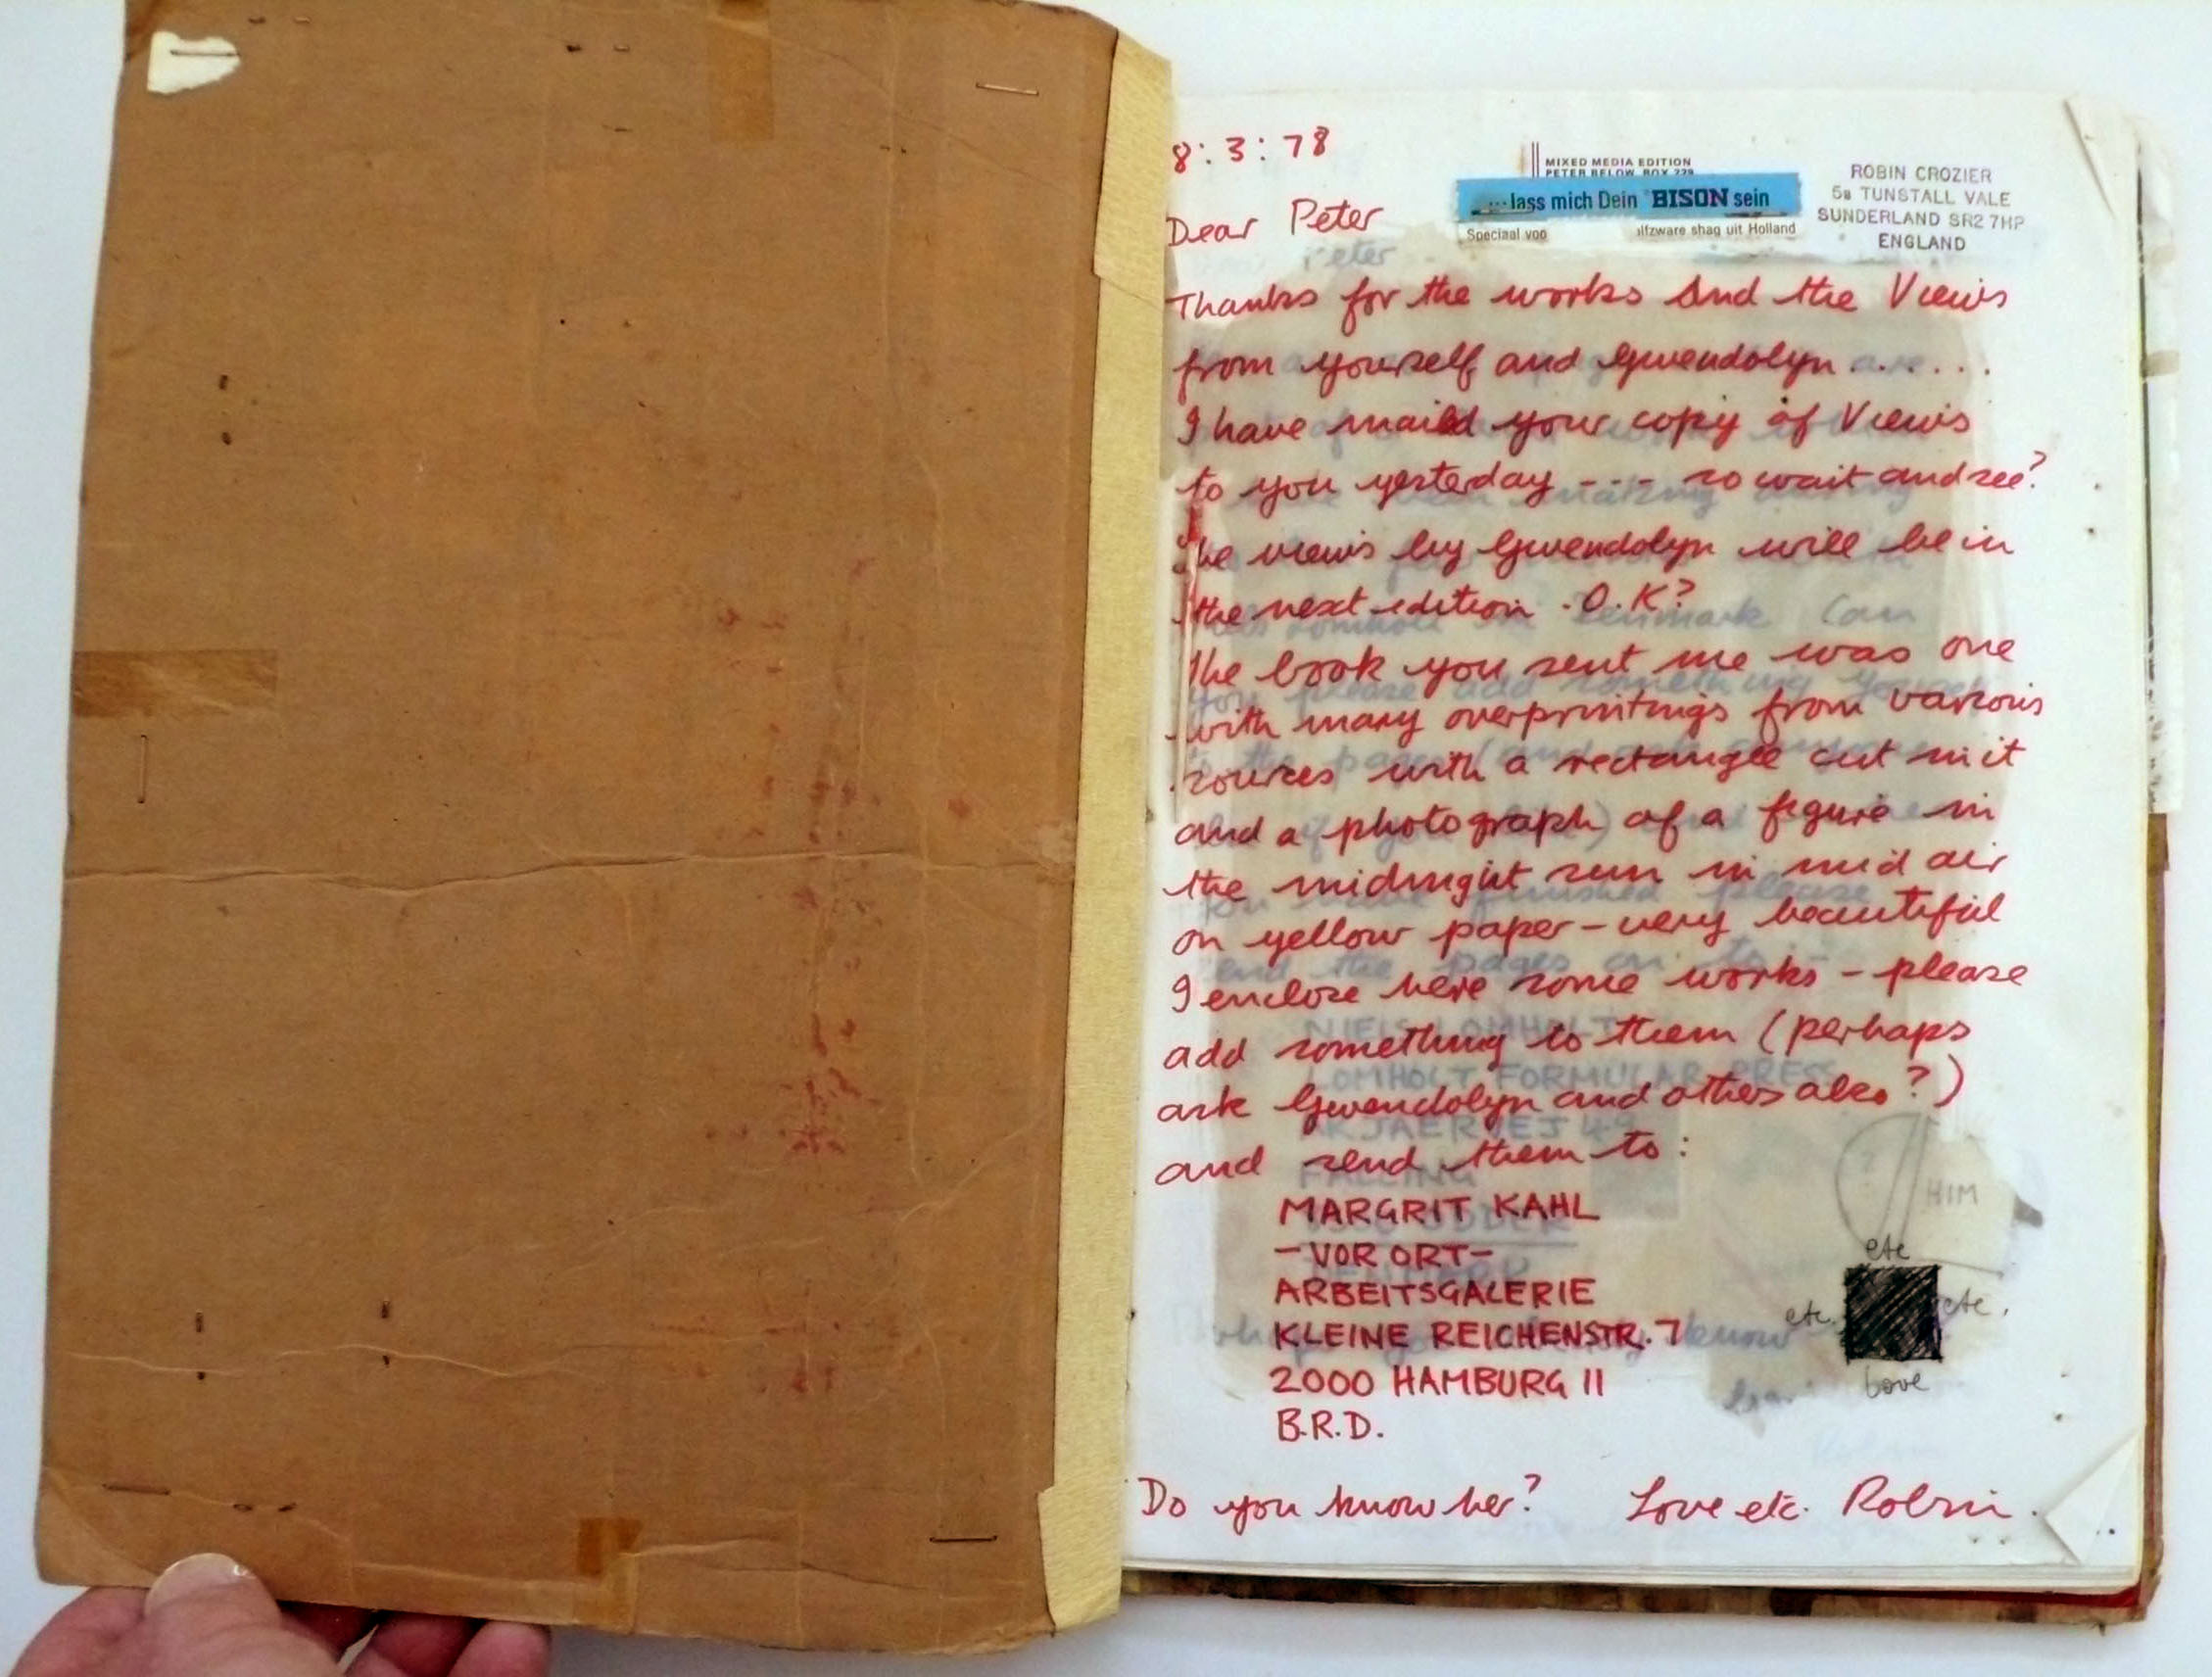 8:3:78
MIXED MEDIA EDITION
PETER BELOW, BOX 229
...lass mich Dein BISON sein
Speciaal voo
alfzware shag uit Holland
ROBIN CROZIER
5a TUNSTALL VALE
SUNDERLAND SR2 7HP
ENGLAND
Dear Peter
Thanks for the works and the Views
from yourself and Gwendolyn . . . . . .
I have mailed your copy of Views
to you yesterday - - - so wait and see?
The views by Gwendolyn will be in
the next edition . O.K?
The book you sent me was one
with many overprintings from various
sources with a rectangle cut in it
and a photograph of a figure in
the midnight sun in mid air
on yellow paper – very beautiful
I enclose here some works – please
add something to them (perhaps
ask Gwendolyn and others also?)
and send them to :
MARGRIT KAHL
– VOR ORT –
ARBEITSGALERIE
KLEINE REICHENSTR. 7
2000 HAMBURG 11
B.R.D.
HIM
etc
etc.
etc.
Love
Do you know her? Love etc. Robin.
NIELS LOMHOLT
LOMHOLT FORMULAR PRESS
FALLING